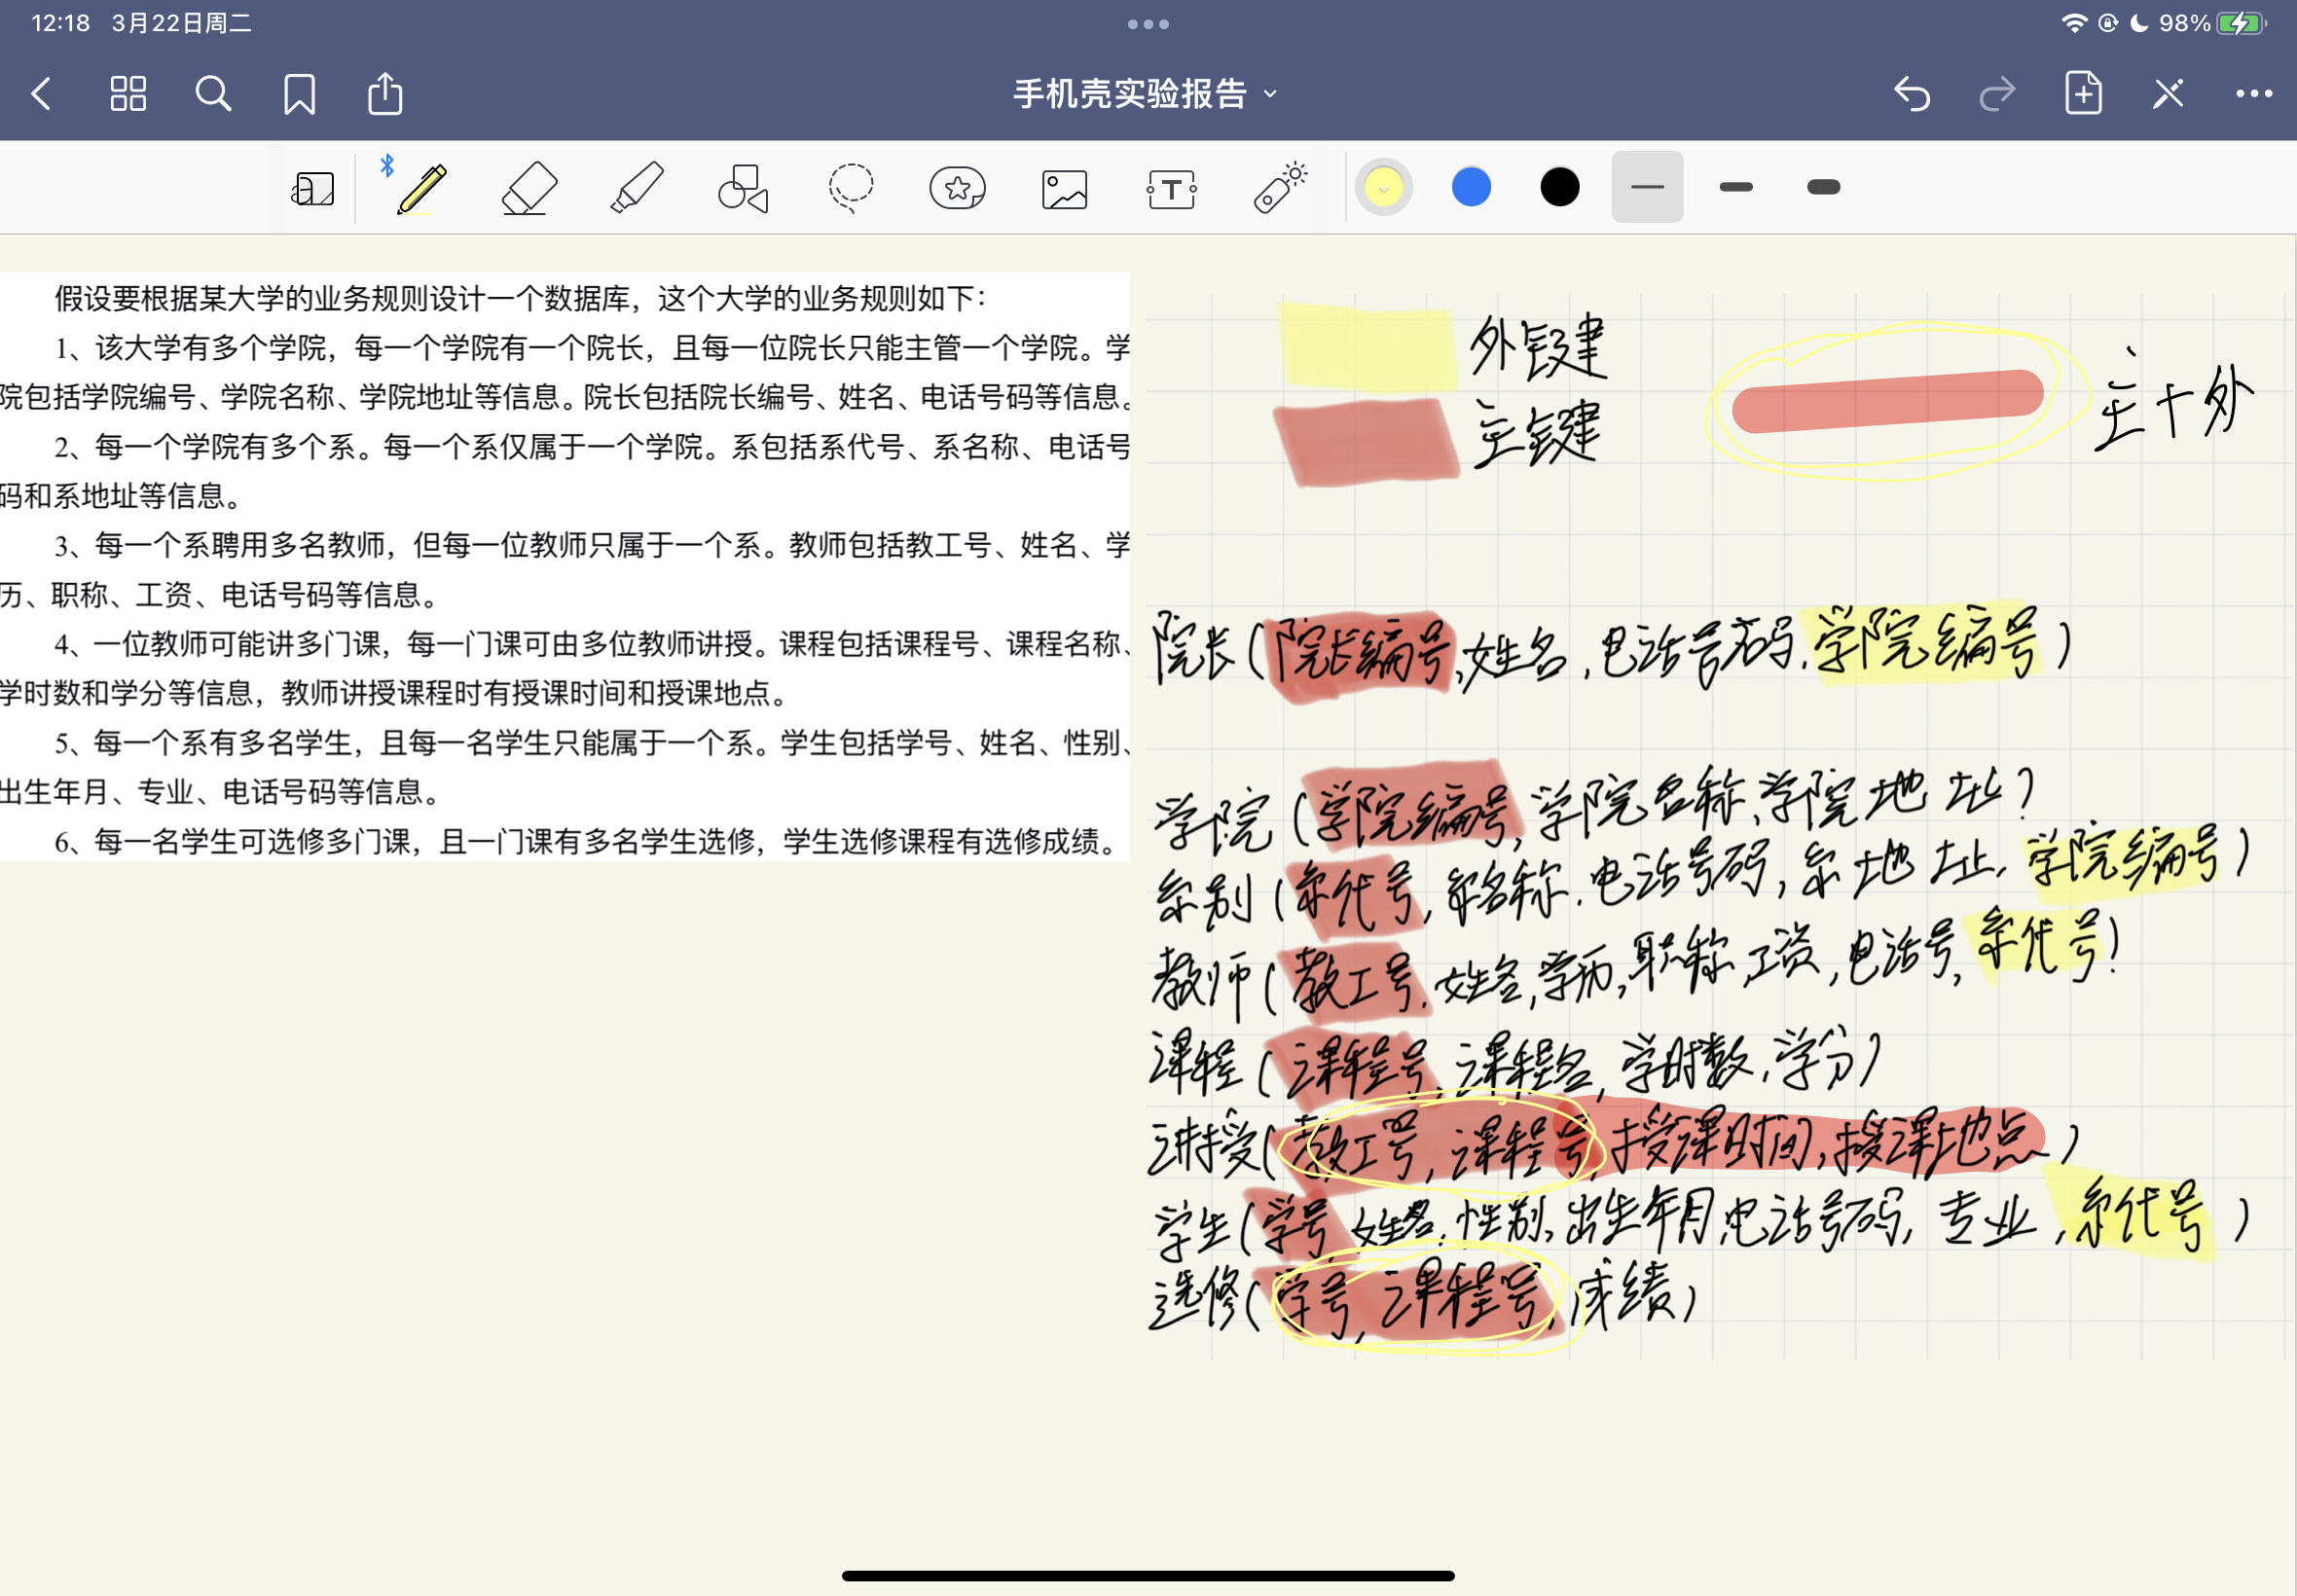 12:18 3月22日周二
98%
手机壳实验报告
假设要根据某大学的业务规则设计一个数据库，这个大学的业务规则如下：
1、该大学有多个学院，每一个学院有一个院长，且每一位院长只能主管一个学院。学
院包括学院编号、学院名称、学院地址等信息。院长包括院长编号、姓名、电话号码等信息。
2、每一个学院有多个系。每一个系仅属于一个学院。系包括系代号、系名称、电话号
码和系地址等信息。
3、每一个系聘用多名教师，但每一位教师只属于一个系。教师包括教工号、姓名、学
历、职称、工资、电话号码等信息。
4、一位教师可能讲多门课，每一门课可由多位教师讲授。课程包括课程号、课程名称、
学时数和学分等信息，教师讲授课程时有授课时间和授课地点。
5、每一个系有多名学生，且每一名学生只能属于一个系。学生包括学号、姓名、性别、
出生年月、专业、电话号码等信息。
6、每一名学生可选修多门课，且一门课有多名学生选修，学生选修课程有选修成绩。
外键
主键
主+外
院长(院长编号,姓名,电话号码,学院编号)
学院(学院编号,学院名称,学院地址)
系别(系代号,系名称,电话号码,系地址,学院编号)
教师(教工号,姓名,学历,职称,工资,电话号,系代号)
课程(课程号,课程名,学时数,学分)
讲授(教工号,课程号,授课时间,授课地点)
学生(学号,姓名,性别,出生年月,电话号码,专业,系代号)
选修(学号,课程号,成绩)